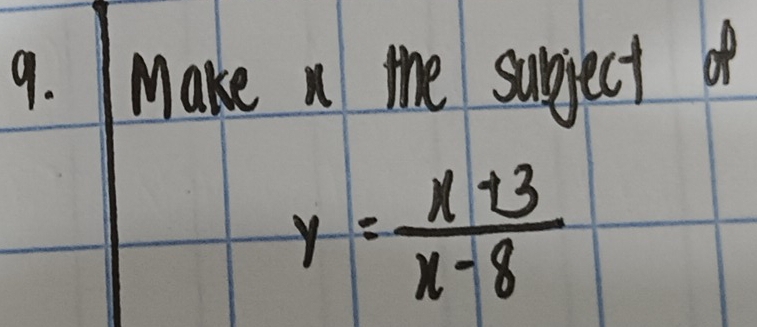 9. Make x the subject of
y = x + 3
x - 8